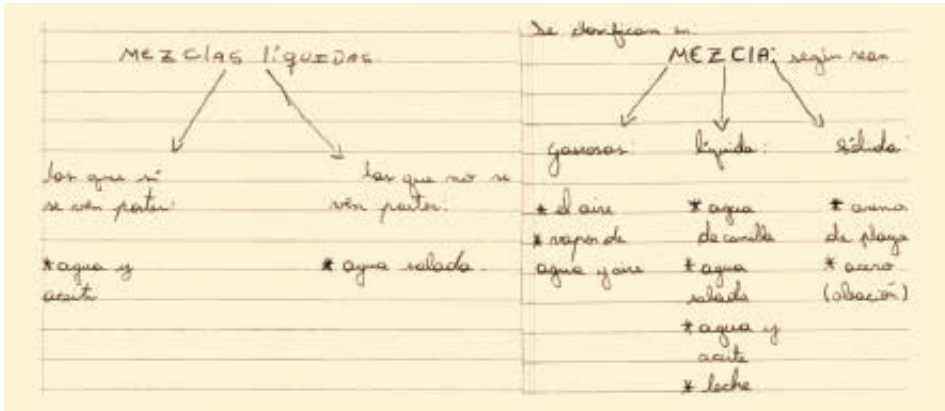 MEZCLAS líQUIDAS.
las que sí
se ven partes:
las que no se
ven partes:
* agua y
aceite
* agua salada.
Se clasifican en:
MEZCLA: según sean
gaseosas:
líquida:
sólida:
* el aire
* vapor de
agua y aire
* agua
de canilla
* agua
salada
* agua y
aceite
* leche
* arena
de playa
* acero
(aleación)